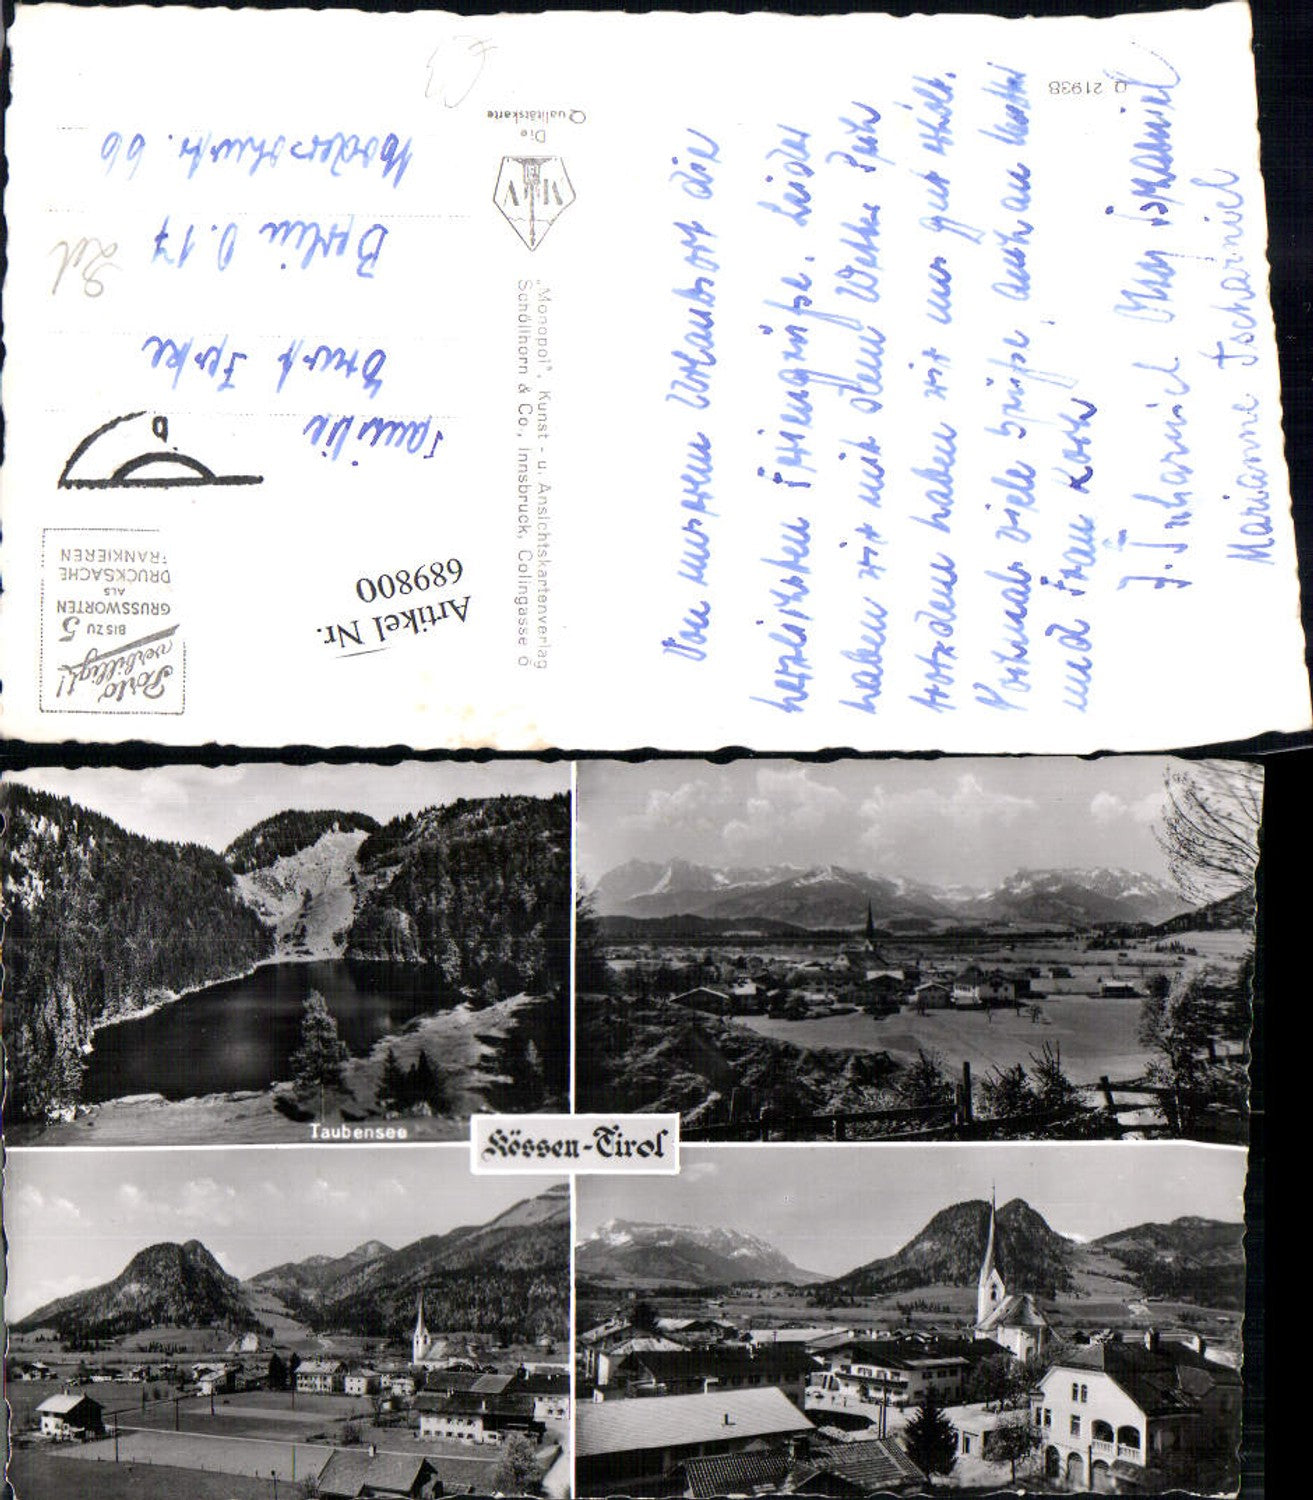 Von unserem Urlaubsort die
herzlichsten Feriengrüße. Leider
haben wir mit dem Wetter Pech
trotzdem haben wir uns gut erholt.
Nochmals viele Grüße auch an Mutter
und Frau Koch
Marianne Tscharnich
Q 21938
Die
Qualitätskarte
MV
„Monopol", Kunst- u. Ansichtskartenverlag
Schöllhorn & Co., Innsbruck, Colingasse 5
Porto
verbilligt!
BIS ZU 5
GRUSSWORTEN
ALS
DRUCKSACHE
FRANKIEREN
Artikel Nr.
689800
Familie
Berlin O.17
Modersohnstr. 66
Taubensee
Kössen-Tirol